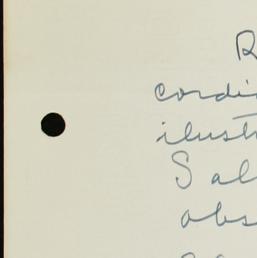 R
cordi
ilustr
Sal
obs